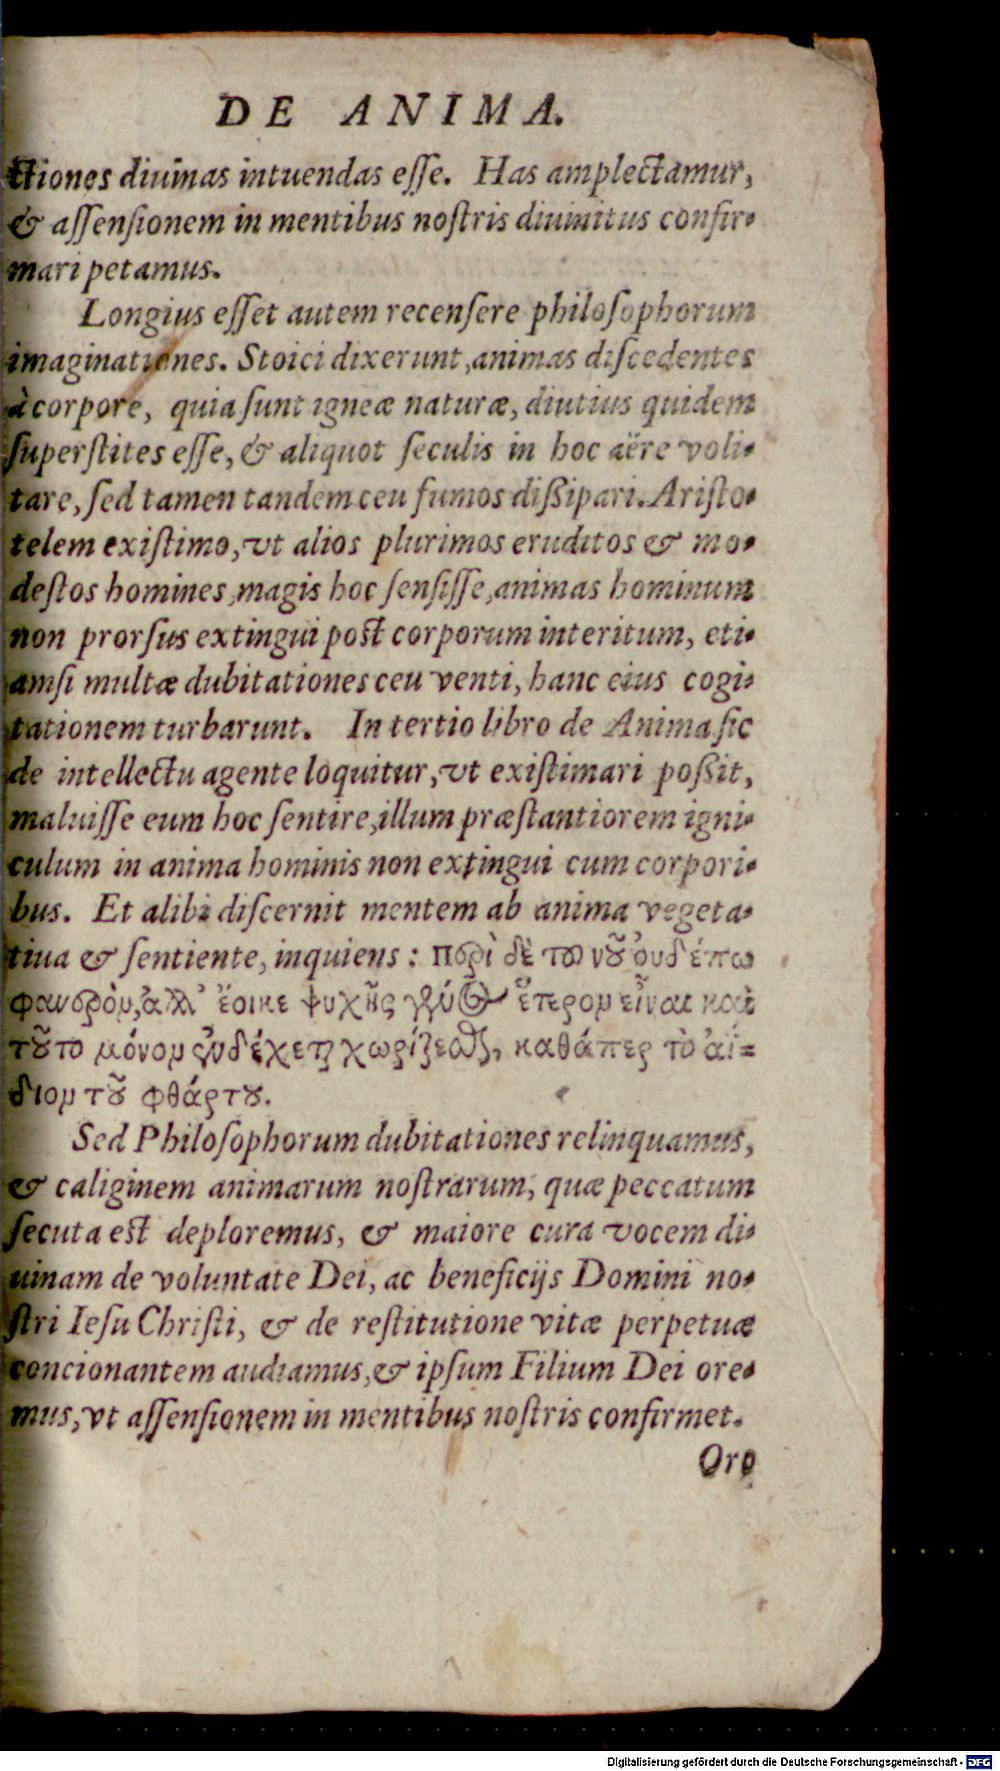 DE ANIMA.
ctiones diuinas intuendas esse. Has amplectamur,
& assensionem in mentibus nostris diuinitus confir-
mari petamus.
Longius esset autem recensere philosophorum
imaginationes. Stoici dixerunt, animas discedentes
à corpore, quia sunt igneæ naturæ, diutius quidem
superstites esse, & aliquot seculis in hoc aëre voli-
tare, sed tamen tandem ceu fumos dißipari. Aristo-
telem existimo, vt alios plurimos eruditos & mo-
destos homines, magis hoc sensisse, animas hominum
non prorsus extingui post corporum interitum, eti-
amsi multæ dubitationes ceu venti, hanc eius cogi-
tationem turbarunt. In tertio libro de Anima sic
de intellectu agente loquitur, vt existimari poßit,
maluisse eum hoc sentire, illum præstantiorem igni-
culum in anima hominis non extingui cum corpori-
bus. Et alibi discernit mentem ab anima vegeta-
tiua & sentiente, inquiens: περὶ δὲ τοῦ νοῦ οὐδέπω
φανερὸν, ἀλλ' ἔοικε ψυχῆς γένος ἕτερον εἶναι καὶ
τοῦτο μόνον ἐνδέχεται χωρίζεσθαι, καθάπερ τὸ ἀΐ-
διον τοῦ φθάρτου.
Sed Philosophorum dubitationes relinquamus,
& caliginem animarum nostrarum, quæ peccatum
secuta est deploremus, & maiore cura vocem di-
uinam de voluntate Dei, ac beneficijs Domini no-
stri Iesu Christi, & de restitutione vitæ perpetuæ
concionantem audiamus, & ipsum Filium Dei ore-
mus, vt assensionem in mentibus nostris confirmet.
Oro
Digitalisierung gefördert durch die Deutsche Forschungsgemeinschaft - DFG